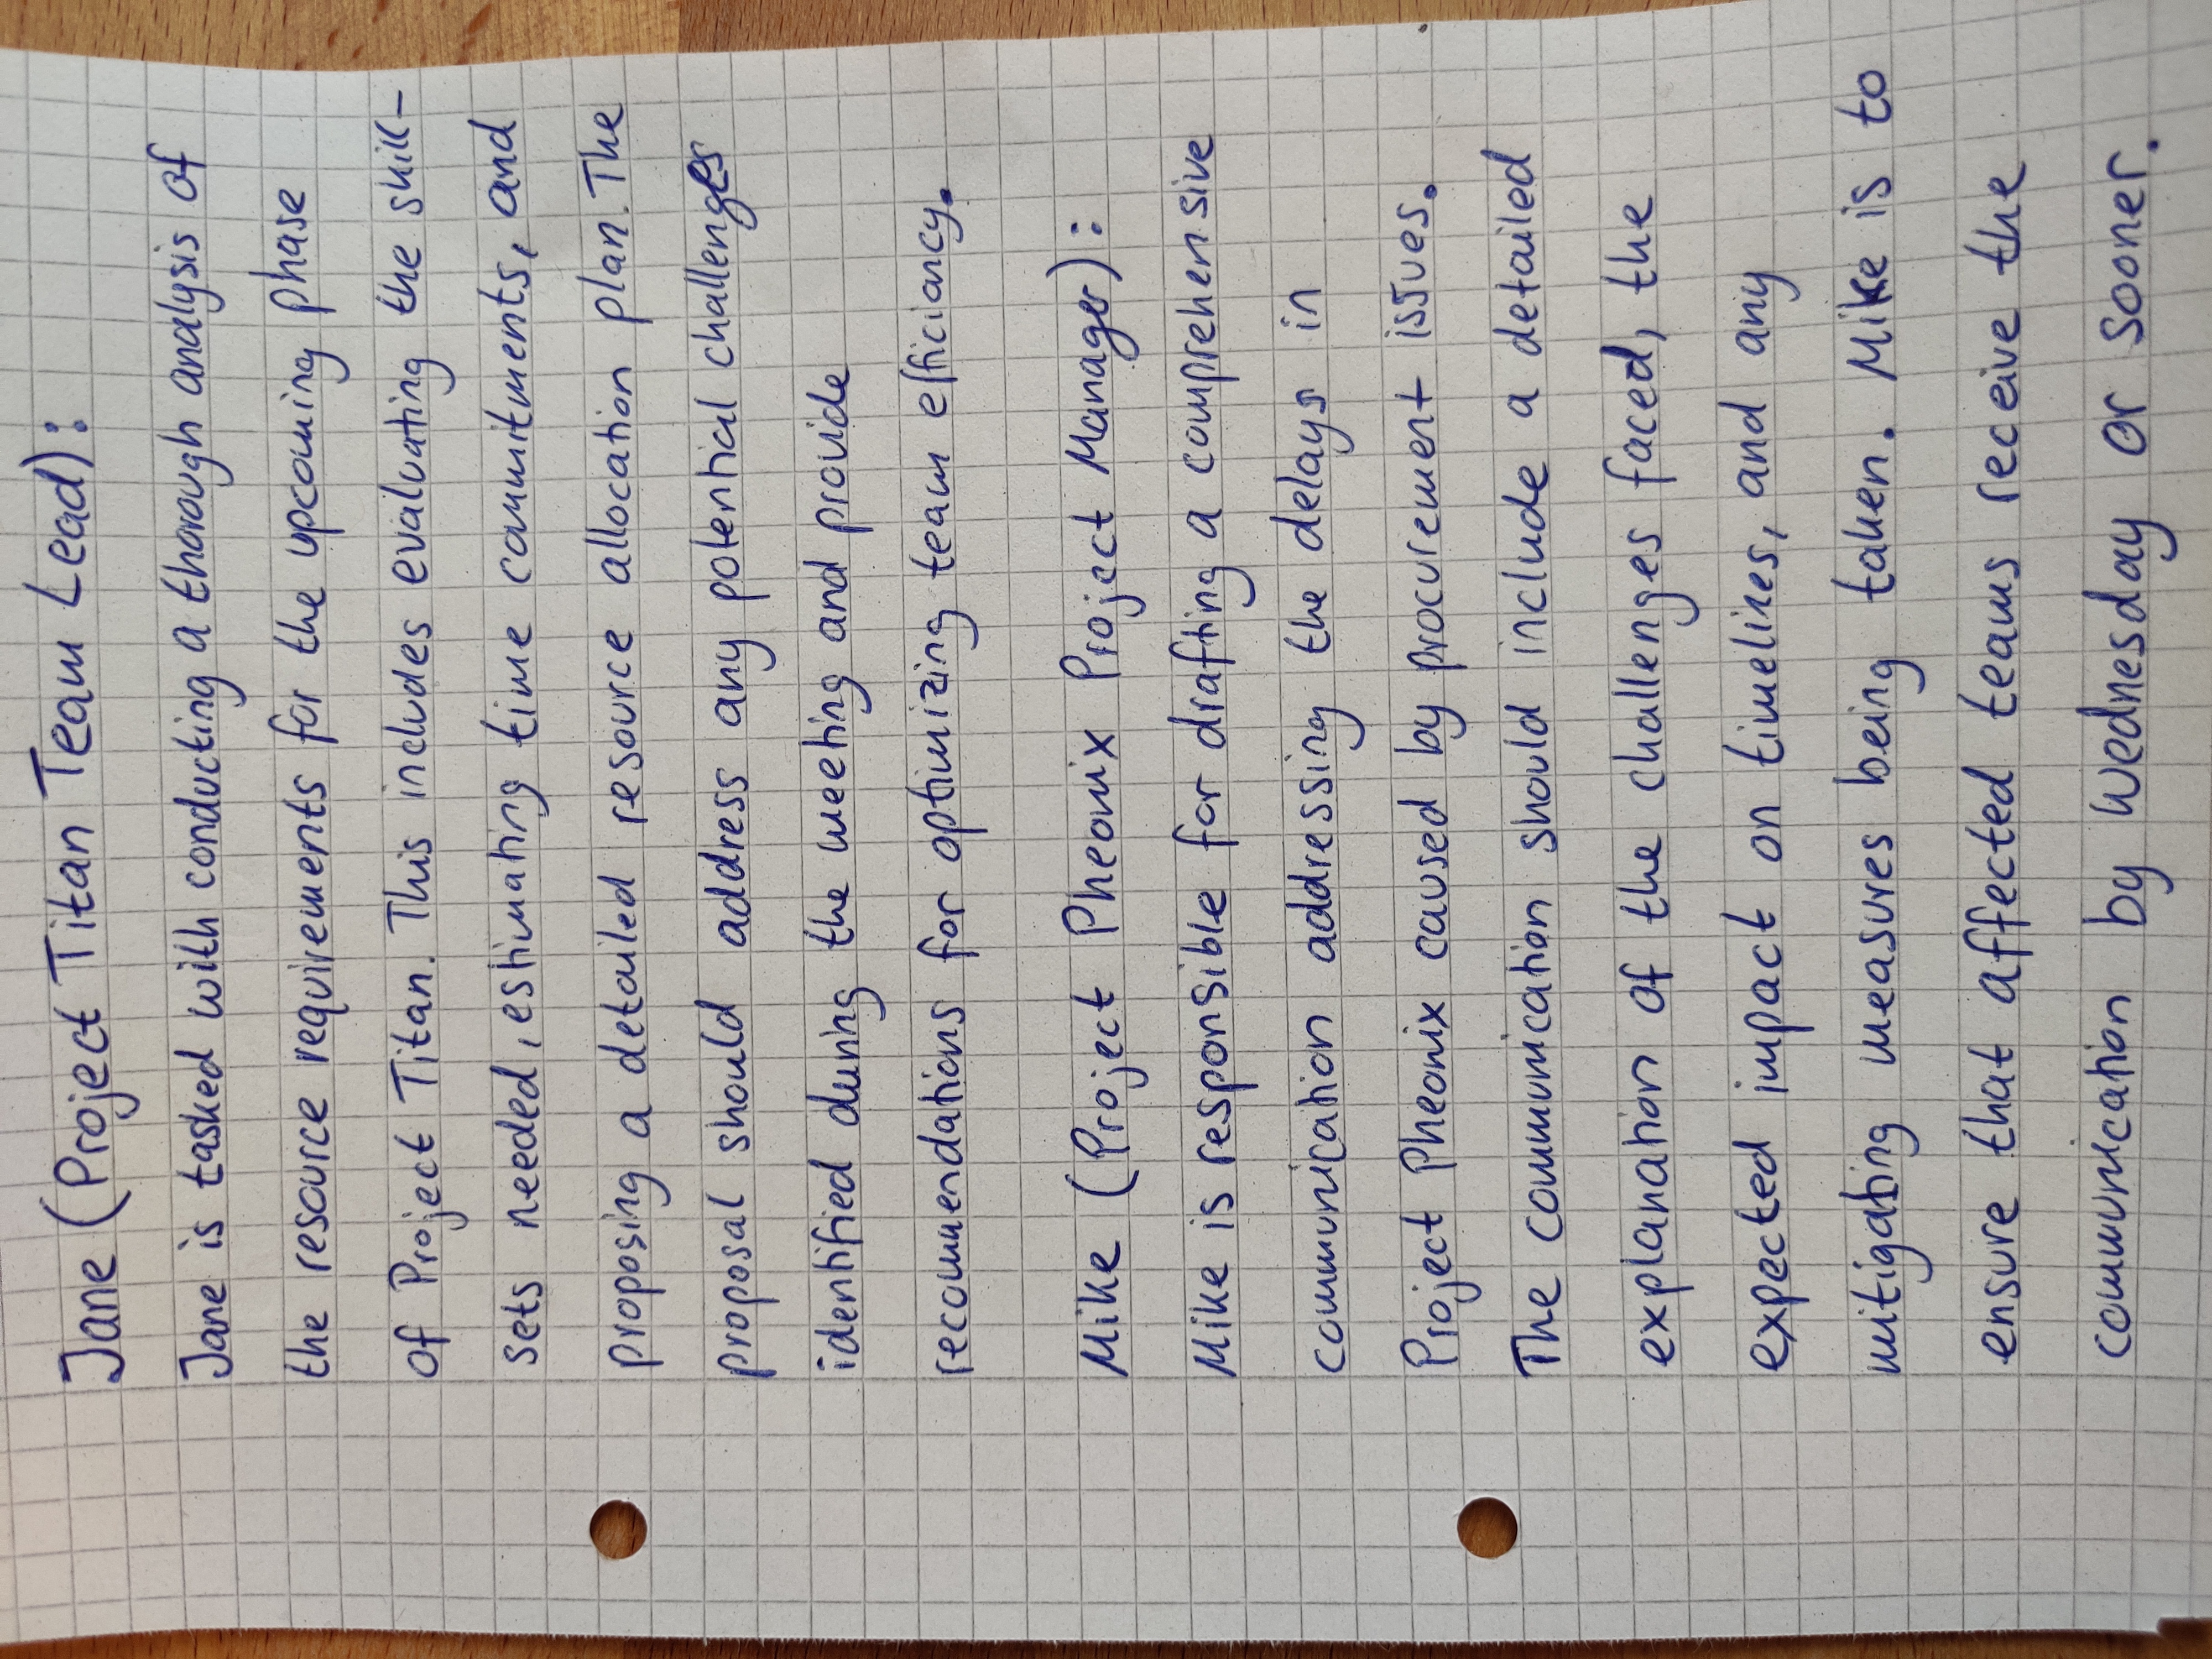 Jane (Project Titan Team Lead):
Jane is tasked with conducting a thorough analysis of
the resource requirements for the upcoming phase
of Project Titan. This includes evaluating the skill-
sets needed, estimating time commitments, and
proposing a detailed resource allocation plan. The
proposal should address any potential challenges
identified during the meeting and provide
recommendations for optimizing team efficiancy.
Mike (Project Pheonix Project Manager):
Mike is responsible for drafting a comprehensive
communication addressing the delays in
Project Pheonix caused by procurement issues.
The communication should include a detailed
explanation of the challenges faced, the
expected impact on timelines, and any
mitigating measures being taken. Mike is to
ensure that affected teams receive the
communication by Wednesday or sooner.